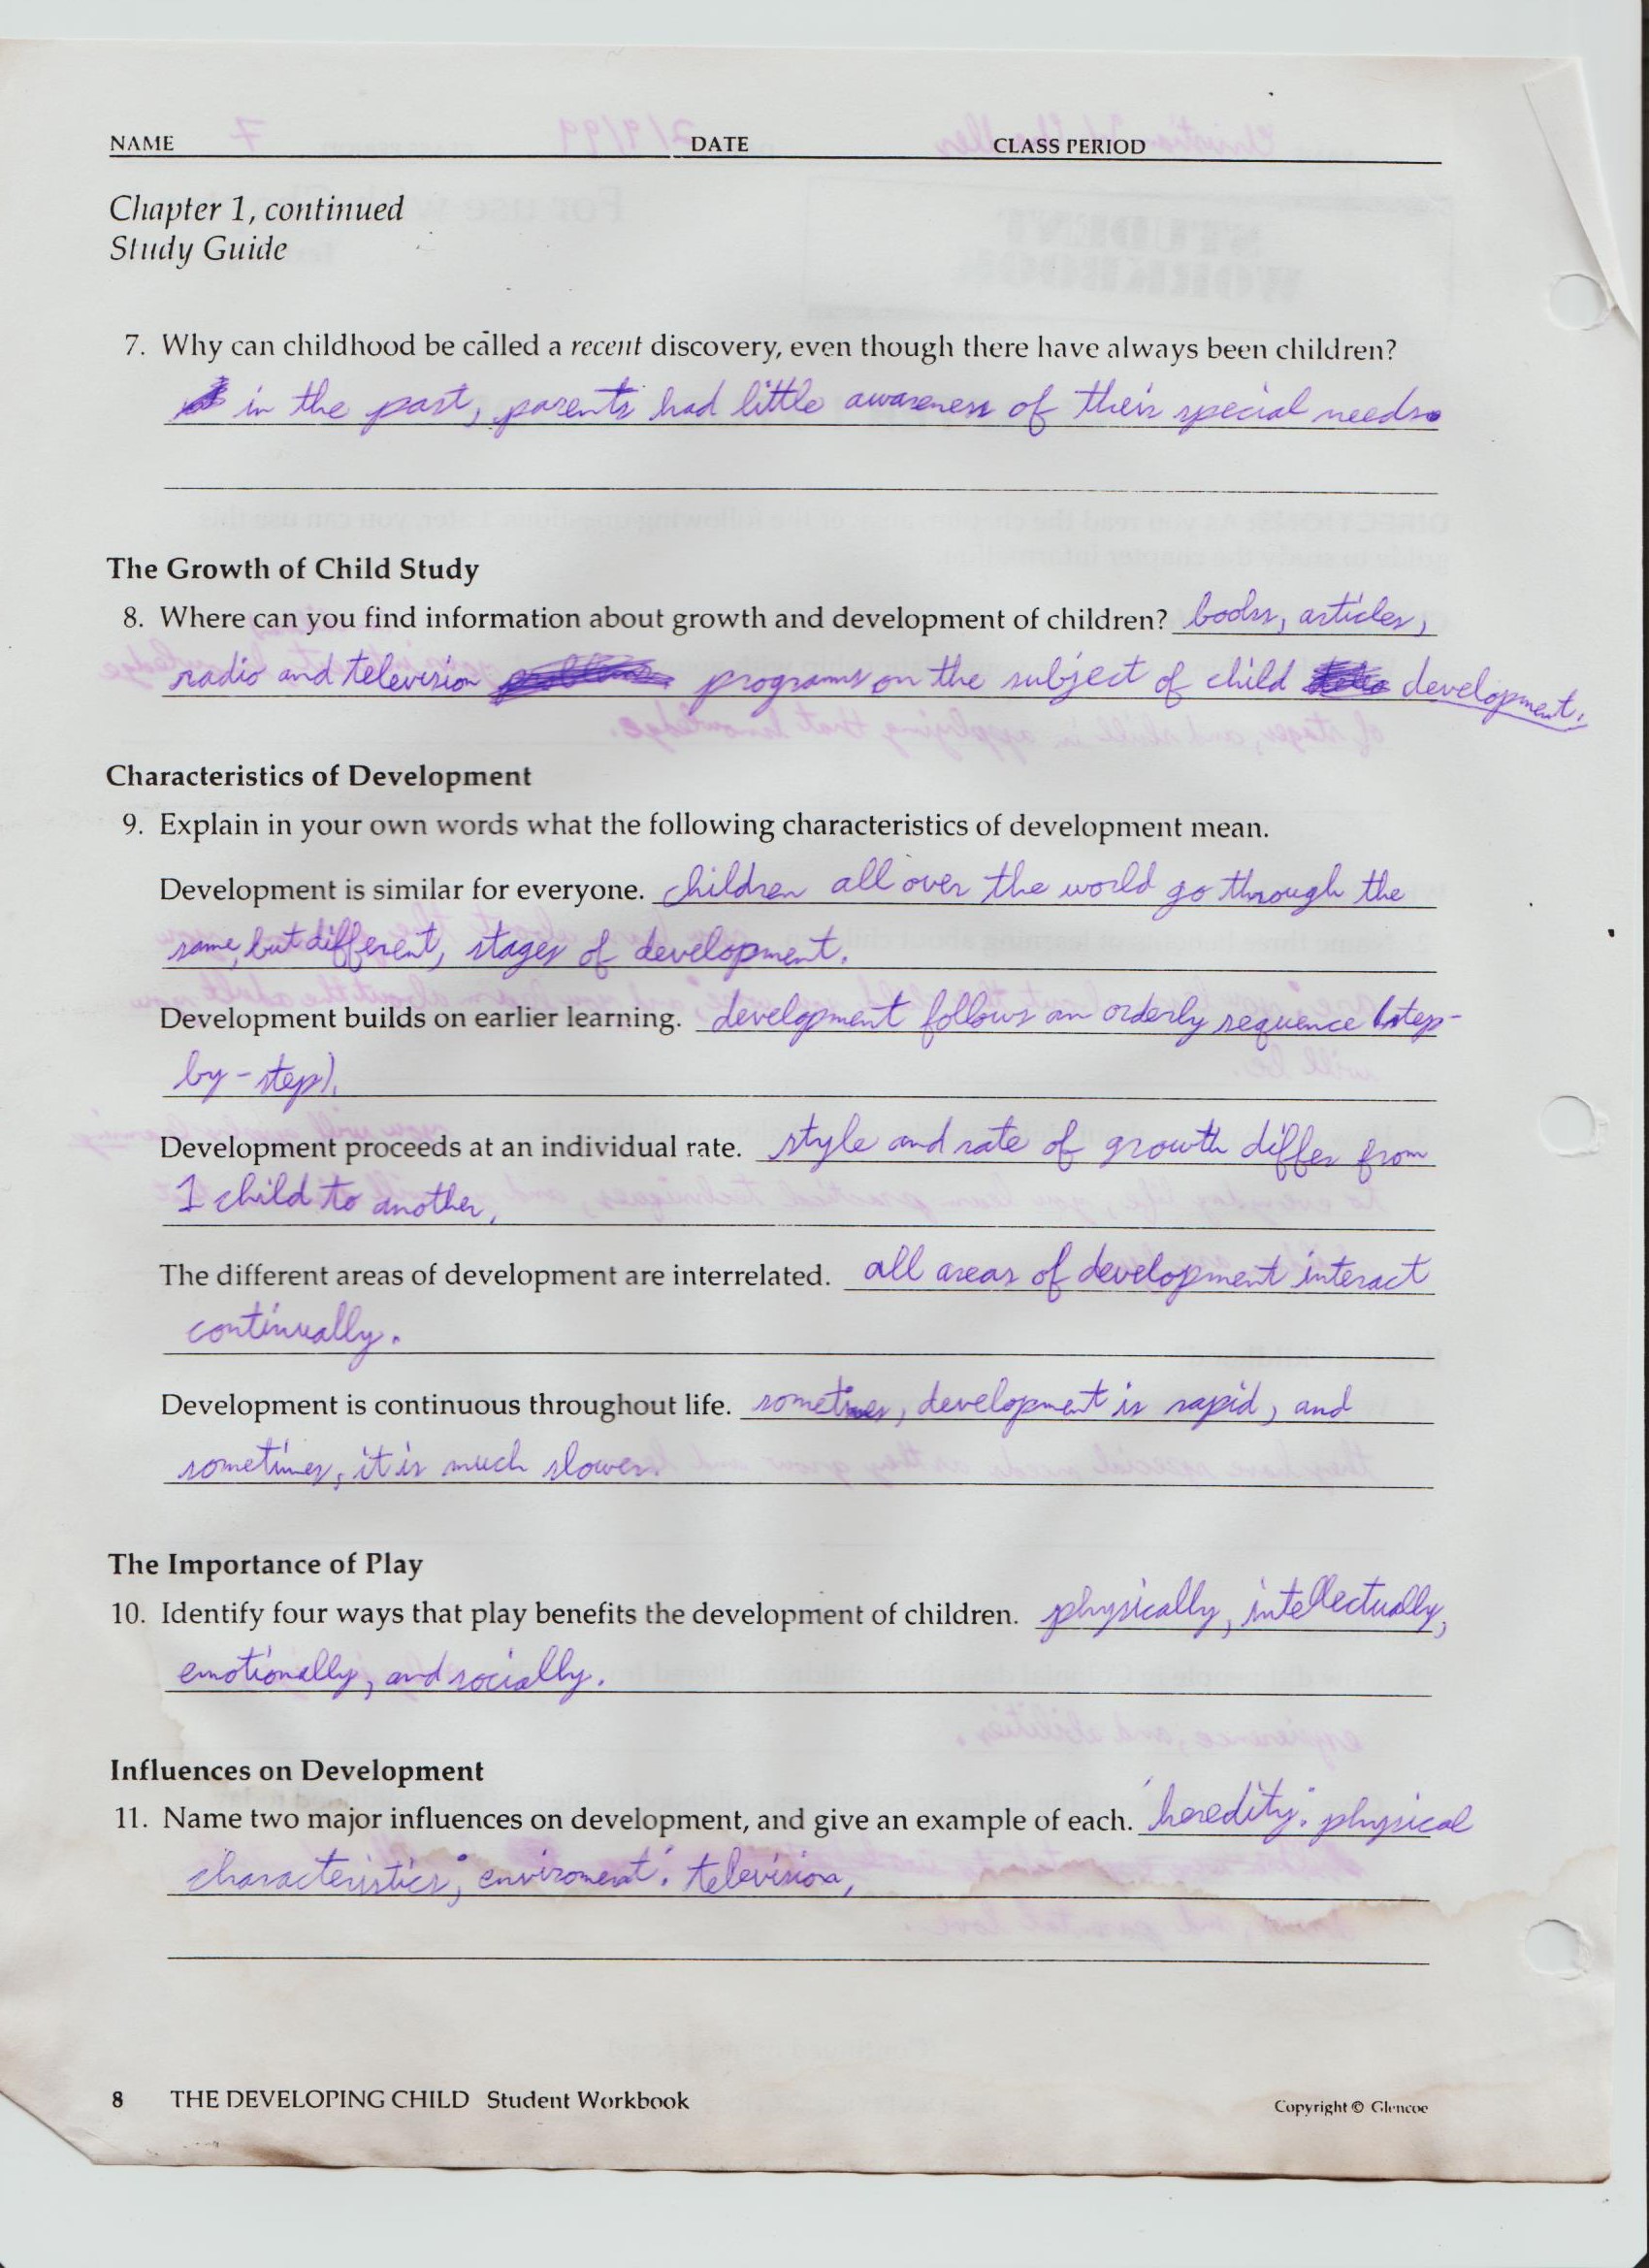 NAME DATE CLASS PERIOD
Chapter 1, continued
Study Guide
7. Why can childhood be called a recent discovery, even though there have always been children?
in the past, parents had little awareness of their special needs.
The Growth of Child Study
8. Where can you find information about growth and development of children? books, articles,
radio and television programs on the subject of child development.
Characteristics of Development
9. Explain in your own words what the following characteristics of development mean.
Development is similar for everyone. children all over the world go through the
same, but different, stages of development.
Development builds on earlier learning. development follows an orderly sequence (step-
by-step).
Development proceeds at an individual rate. style and rate of growth differ from
1 child to another.
The different areas of development are interrelated. all areas of development interact
continually.
Development is continuous throughout life. sometimes, development is rapid, and
sometimes, it is much slower.
The Importance of Play
10. Identify four ways that play benefits the development of children. physically, intellectually,
emotionally, and socially.
Influences on Development
11. Name two major influences on development, and give an example of each. heredity: physical
characteristics; enviroment: television.
8 THE DEVELOPING CHILD Student Workbook
Copyright © Glencoe